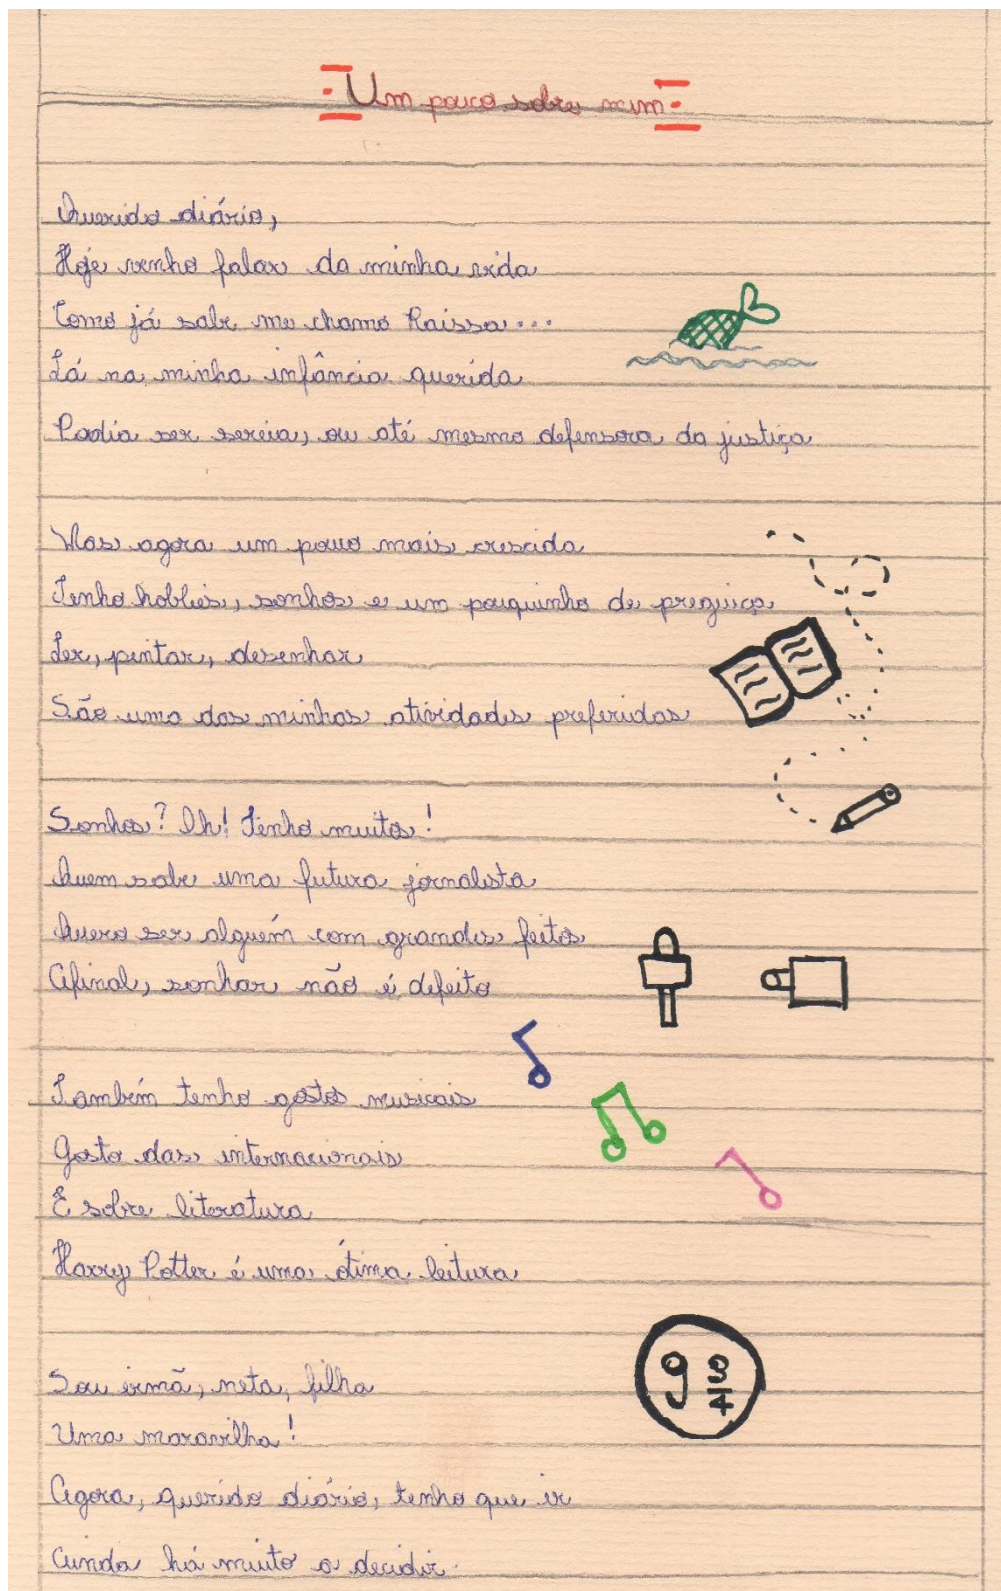 Um pouco sobre mim
Querido diário,
Hoje venho falar da minha vida
Como já sabe me chamo Raissa...
Lá na minha infância querida
Podia ser sereia, ou até mesmo defensora da justiça
Mas agora um pouco mais crescida
Tenho hobbies, sonhos e um pouquinho de preguiça
Ler, pintar, desenhar
São uma das minhas atividades preferidas
Sonhos? Oh! Tenho muitos!
Quem sabe uma futura jornalista
Quero ser alguém com grandes feitos
Afinal, sonhar não é defeito
Também tenho gostos musicais
Gosto das internacionais
E sobre literatura
Harry Potter é uma ótima leitura
9 3/4
Sou irmã, neta, filha
Uma maravilha!
Agora, querido diário, tenho que ir
Ainda há muito a decidir